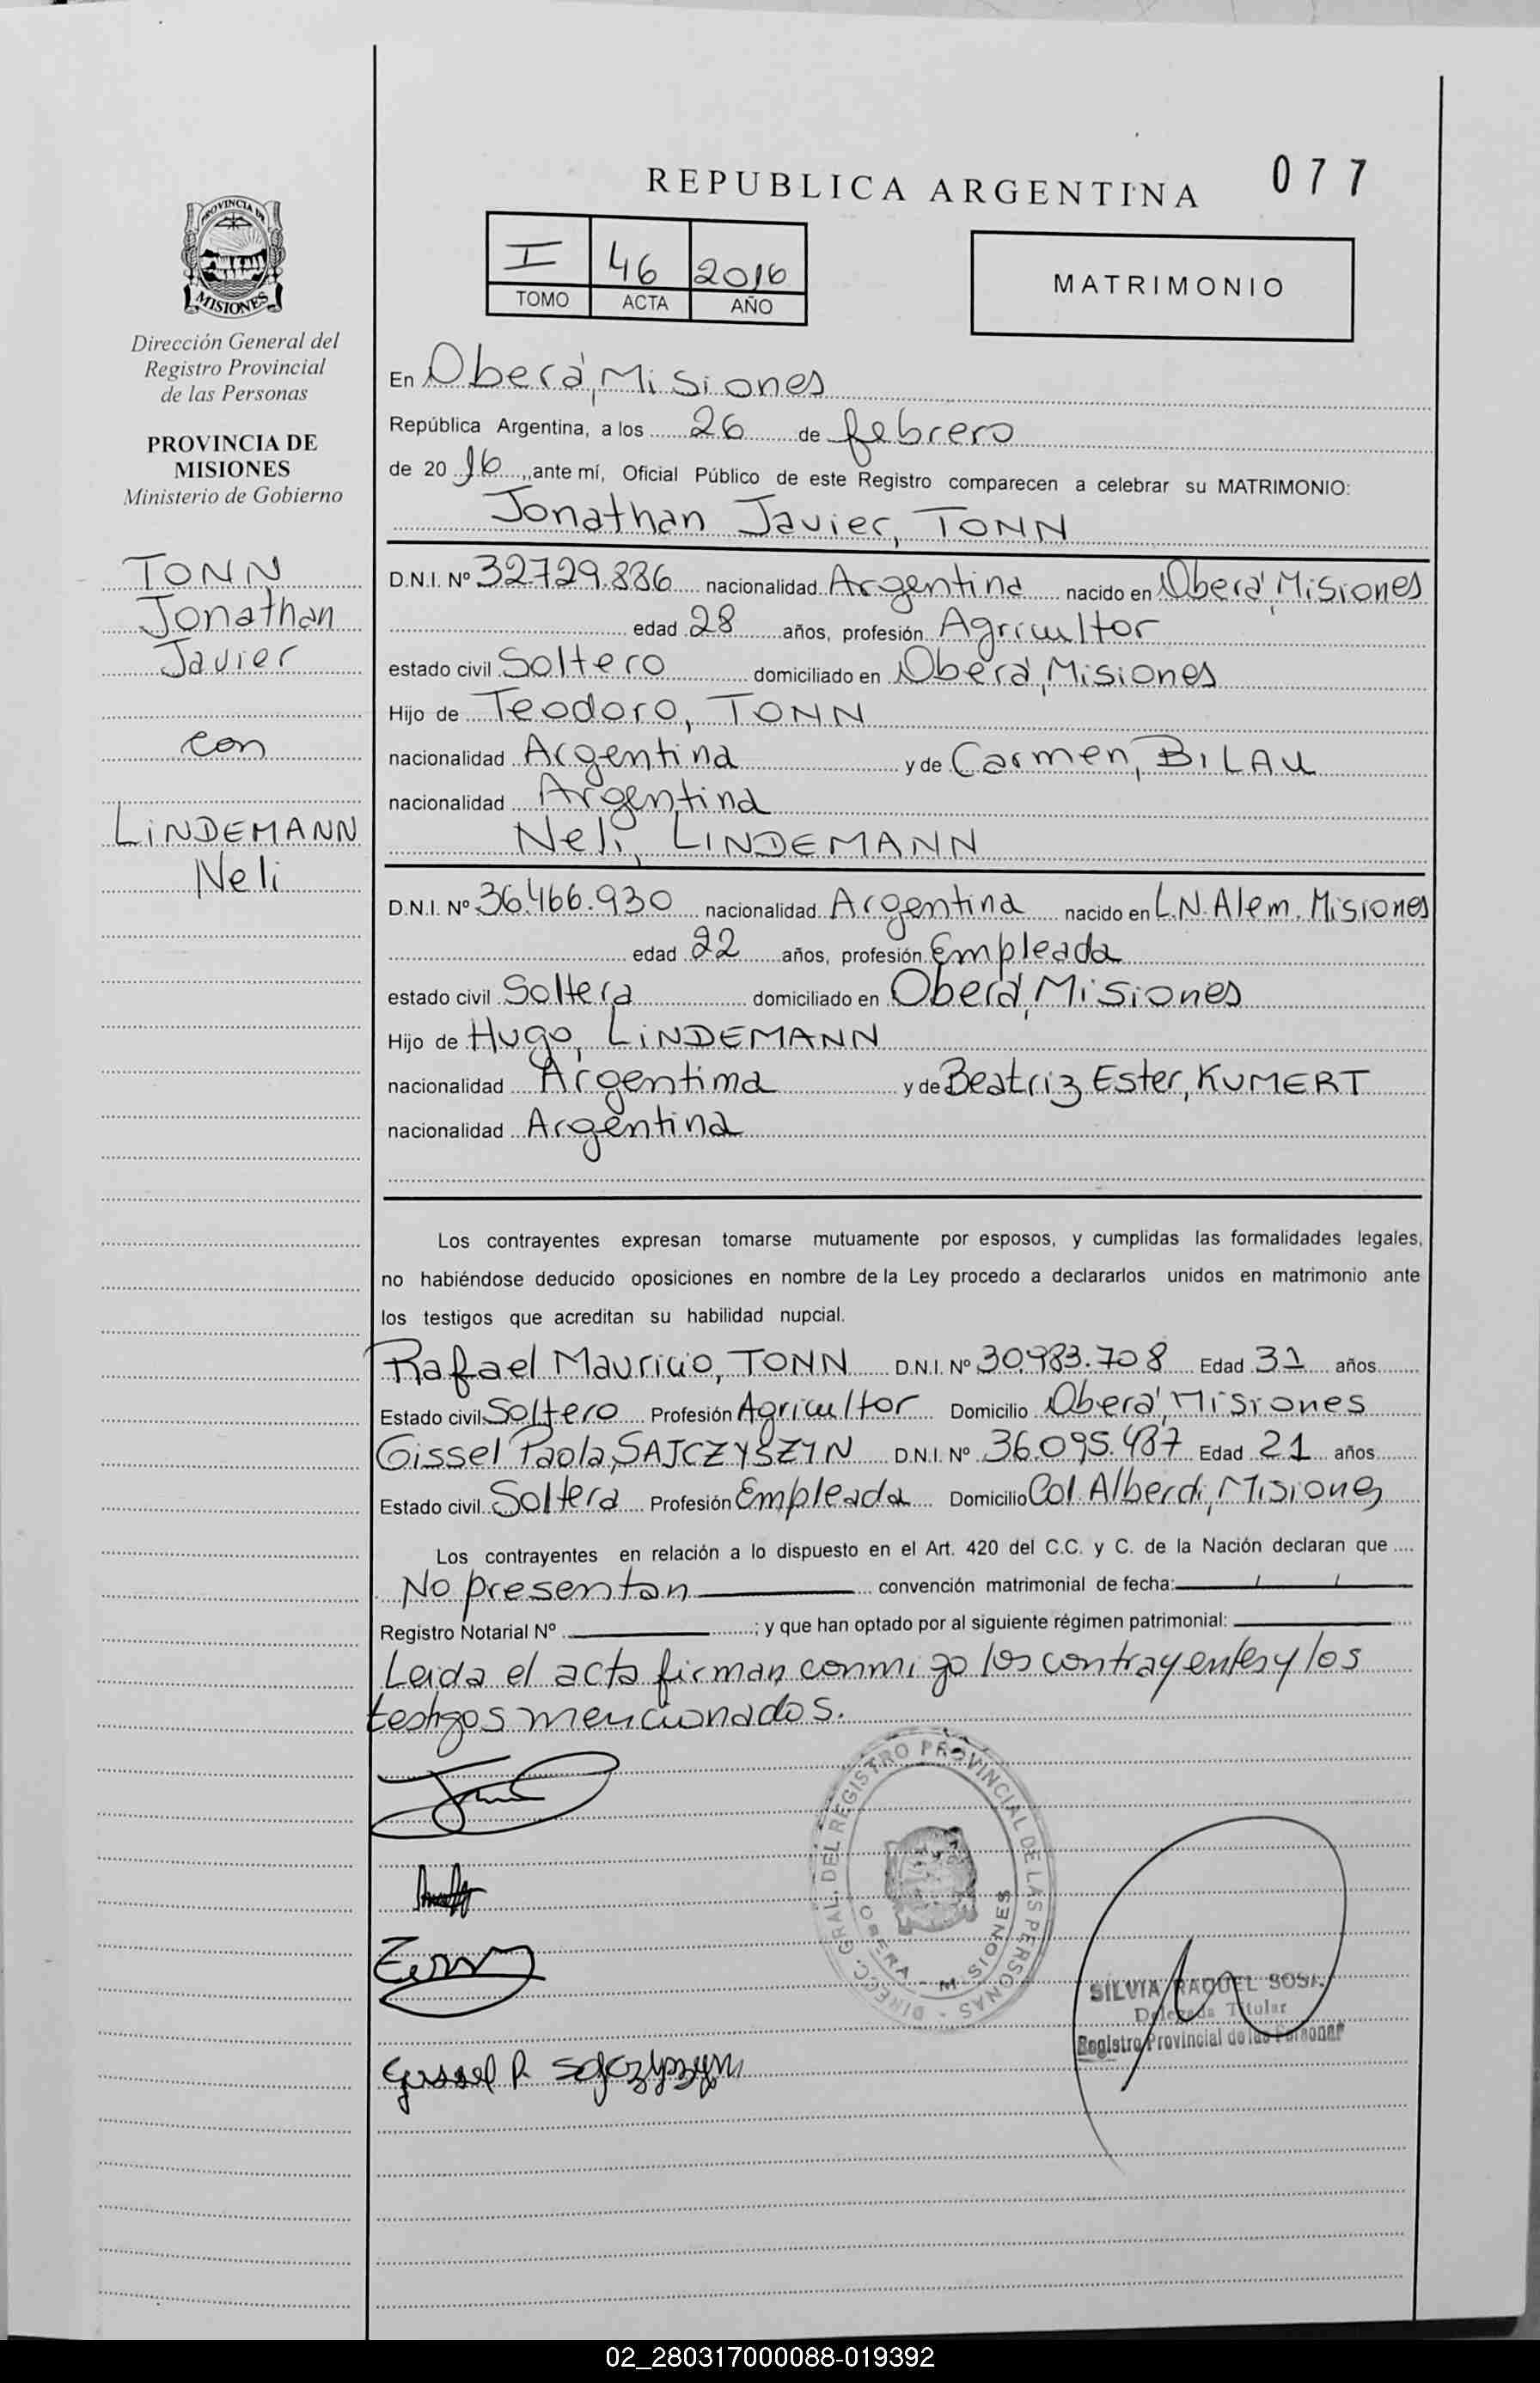 REPUBLICA ARGENTINA
077
PROVINCIA DE
MISIONES
Dirección General del
Registro Provincial
de las Personas
PROVINCIA DE
MISIONES
Ministerio de Gobierno
TONN
Jonathan
Javier
con
LINDEMANN
Neli
I 46 2016
TOMO ACTA AÑO
MATRIMONIO
En Oberá, Misiones
República Argentina, a los 26 de febrero
de 20 16, ante mí, Oficial Público de este Registro comparecen a celebrar su MATRIMONIO:
Jonathan Javier, TONN
D.N.I. Nº 32.729.886 nacionalidad Argentina nacido en Oberá, Misiones
edad 28 años, profesión Agricultor
estado civil Soltero domiciliado en Oberá, Misiones
Hijo de Teodoro, TONN
nacionalidad Argentina y de Carmen, BILAU
nacionalidad Argentina
Neli, LINDEMANN
D.N.I. Nº 36.466.930 nacionalidad Argentina nacido en L.N. Alem. Misiones
edad 22 años, profesión Empleada
estado civil Soltera domiciliado en Oberá, Misiones
Hijo de Hugo, LINDEMANN
nacionalidad Argentina y de Beatriz Ester, KUMERT
nacionalidad Argentina
Los contrayentes expresan tomarse mutuamente por esposos, y cumplidas las formalidades legales,
no habiéndose deducido oposiciones en nombre de la Ley procedo a declararlos unidos en matrimonio ante
los testigos que acreditan su habilidad nupcial.
Rafael Mauricio, TONN D.N.I. Nº 30.983.708 Edad 31 años
Estado civil Soltero Profesión Agricultor Domicilio Oberá, Misiones
Gissel Paola, SAJCZYSZYN D.N.I. Nº 36.095.487 Edad 21 años
Estado civil Soltera Profesión Empleada Domicilio Col. Alberdi, Misiones
Los contrayentes en relación a lo dispuesto en el Art. 420 del C.C. y C. de la Nación declaran que
No presentan convención matrimonial de fecha: / /
Registro Notarial Nº ; y que han optado por al siguiente régimen patrimonial:
Leida el acta firman conmigo los contrayentes y los
testigos mencionados.
DIRECC. GRAL. DEL REGISTRO PROVINCIAL DE LAS PERSONAS
OBERA - MISIONES
SILVIA RAQUEL SOSA
Delegada Titular
Registro Provincial de las Personas
Gissel P. Sajczyszyn
02_280317000088-019392